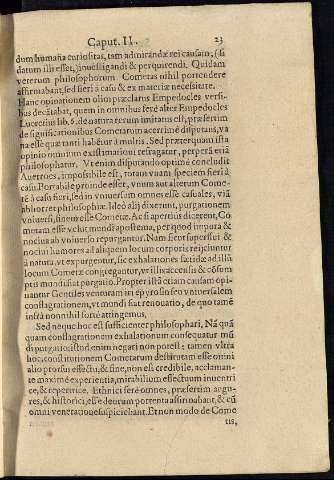 Caput. II. 23
dum humana curiositas, tam admirandæ rei causam, (si
datum illi esset, inuestigandi & perquirendi. Quidam
veterum philosophorum Cometas nihil portendere
affirmabant, sed fieri à casu & ex materiæ necessitate.
Hanc opinationem olim præclarus Empedocles versi-
bus decãtabat, quem in omnibus ferè alter Empedocles
Lucretius lib. 6. de natura rerum imitatus est, præsertim
de significationibus Cometarum acerrimè disputans, va
na esse quæ tanti habẽtur à multis. Sed præterquam ista
opinio omnium existimationi refragatur, perperã etiã
philosophatur. Vt enim disputando optimè concludit
Auerroes, impossibile est, totam vnam speciem fieri à
casu. Portabile proinde esset, vnum aut alterum Come-
tẽ à casu fieri, sed in vniuersum omnes esse casuales, vnã
abhorret philosophiæ. Ideò alij dixerunt, purgationem
vniuersi, sine re esse Cometæ. Ac si apertiùs dicerent, Co
metam esse velut mundi apostema, per quod impura &
nociua ab vniuerso repurgantur. Nam sicut superflui &
nociui humores ad aliquem locum corporis reijciuntur
à natura, vt expurgentur, sic exhalationes fœtidæ ad illũ
locum Cometæ congregantur, vt illìx accensis & cõsum
ptis mundi fiat purgatio. Propter istã etiam causam opi-
nantur Gentiles venturam
conflagrationem, vt mundi fiat renouatio, de quo tamẽ
infrà nonnihil fortè attingemus.
Sed neque hoc est sufficienter philosophari, Nã quã
quam conflagrationem exhalationum consequatur mũ
di purgatio; istud enim negari non potest: tamen vltra
hoc, constitutionem Cometarum destitutam esse omni
alio prorsus effectu, & fine, non est credibile, acclaman-
te maximè experientia, mirabilium effectuum inuentri
ce, & repertrice. Ethnici ferè omnes, præsertim augu-
res, & historici, esse deorum portenta affirmabant, & cũ
omni veneratione suspiciebant. Et non modo de Come
tis,